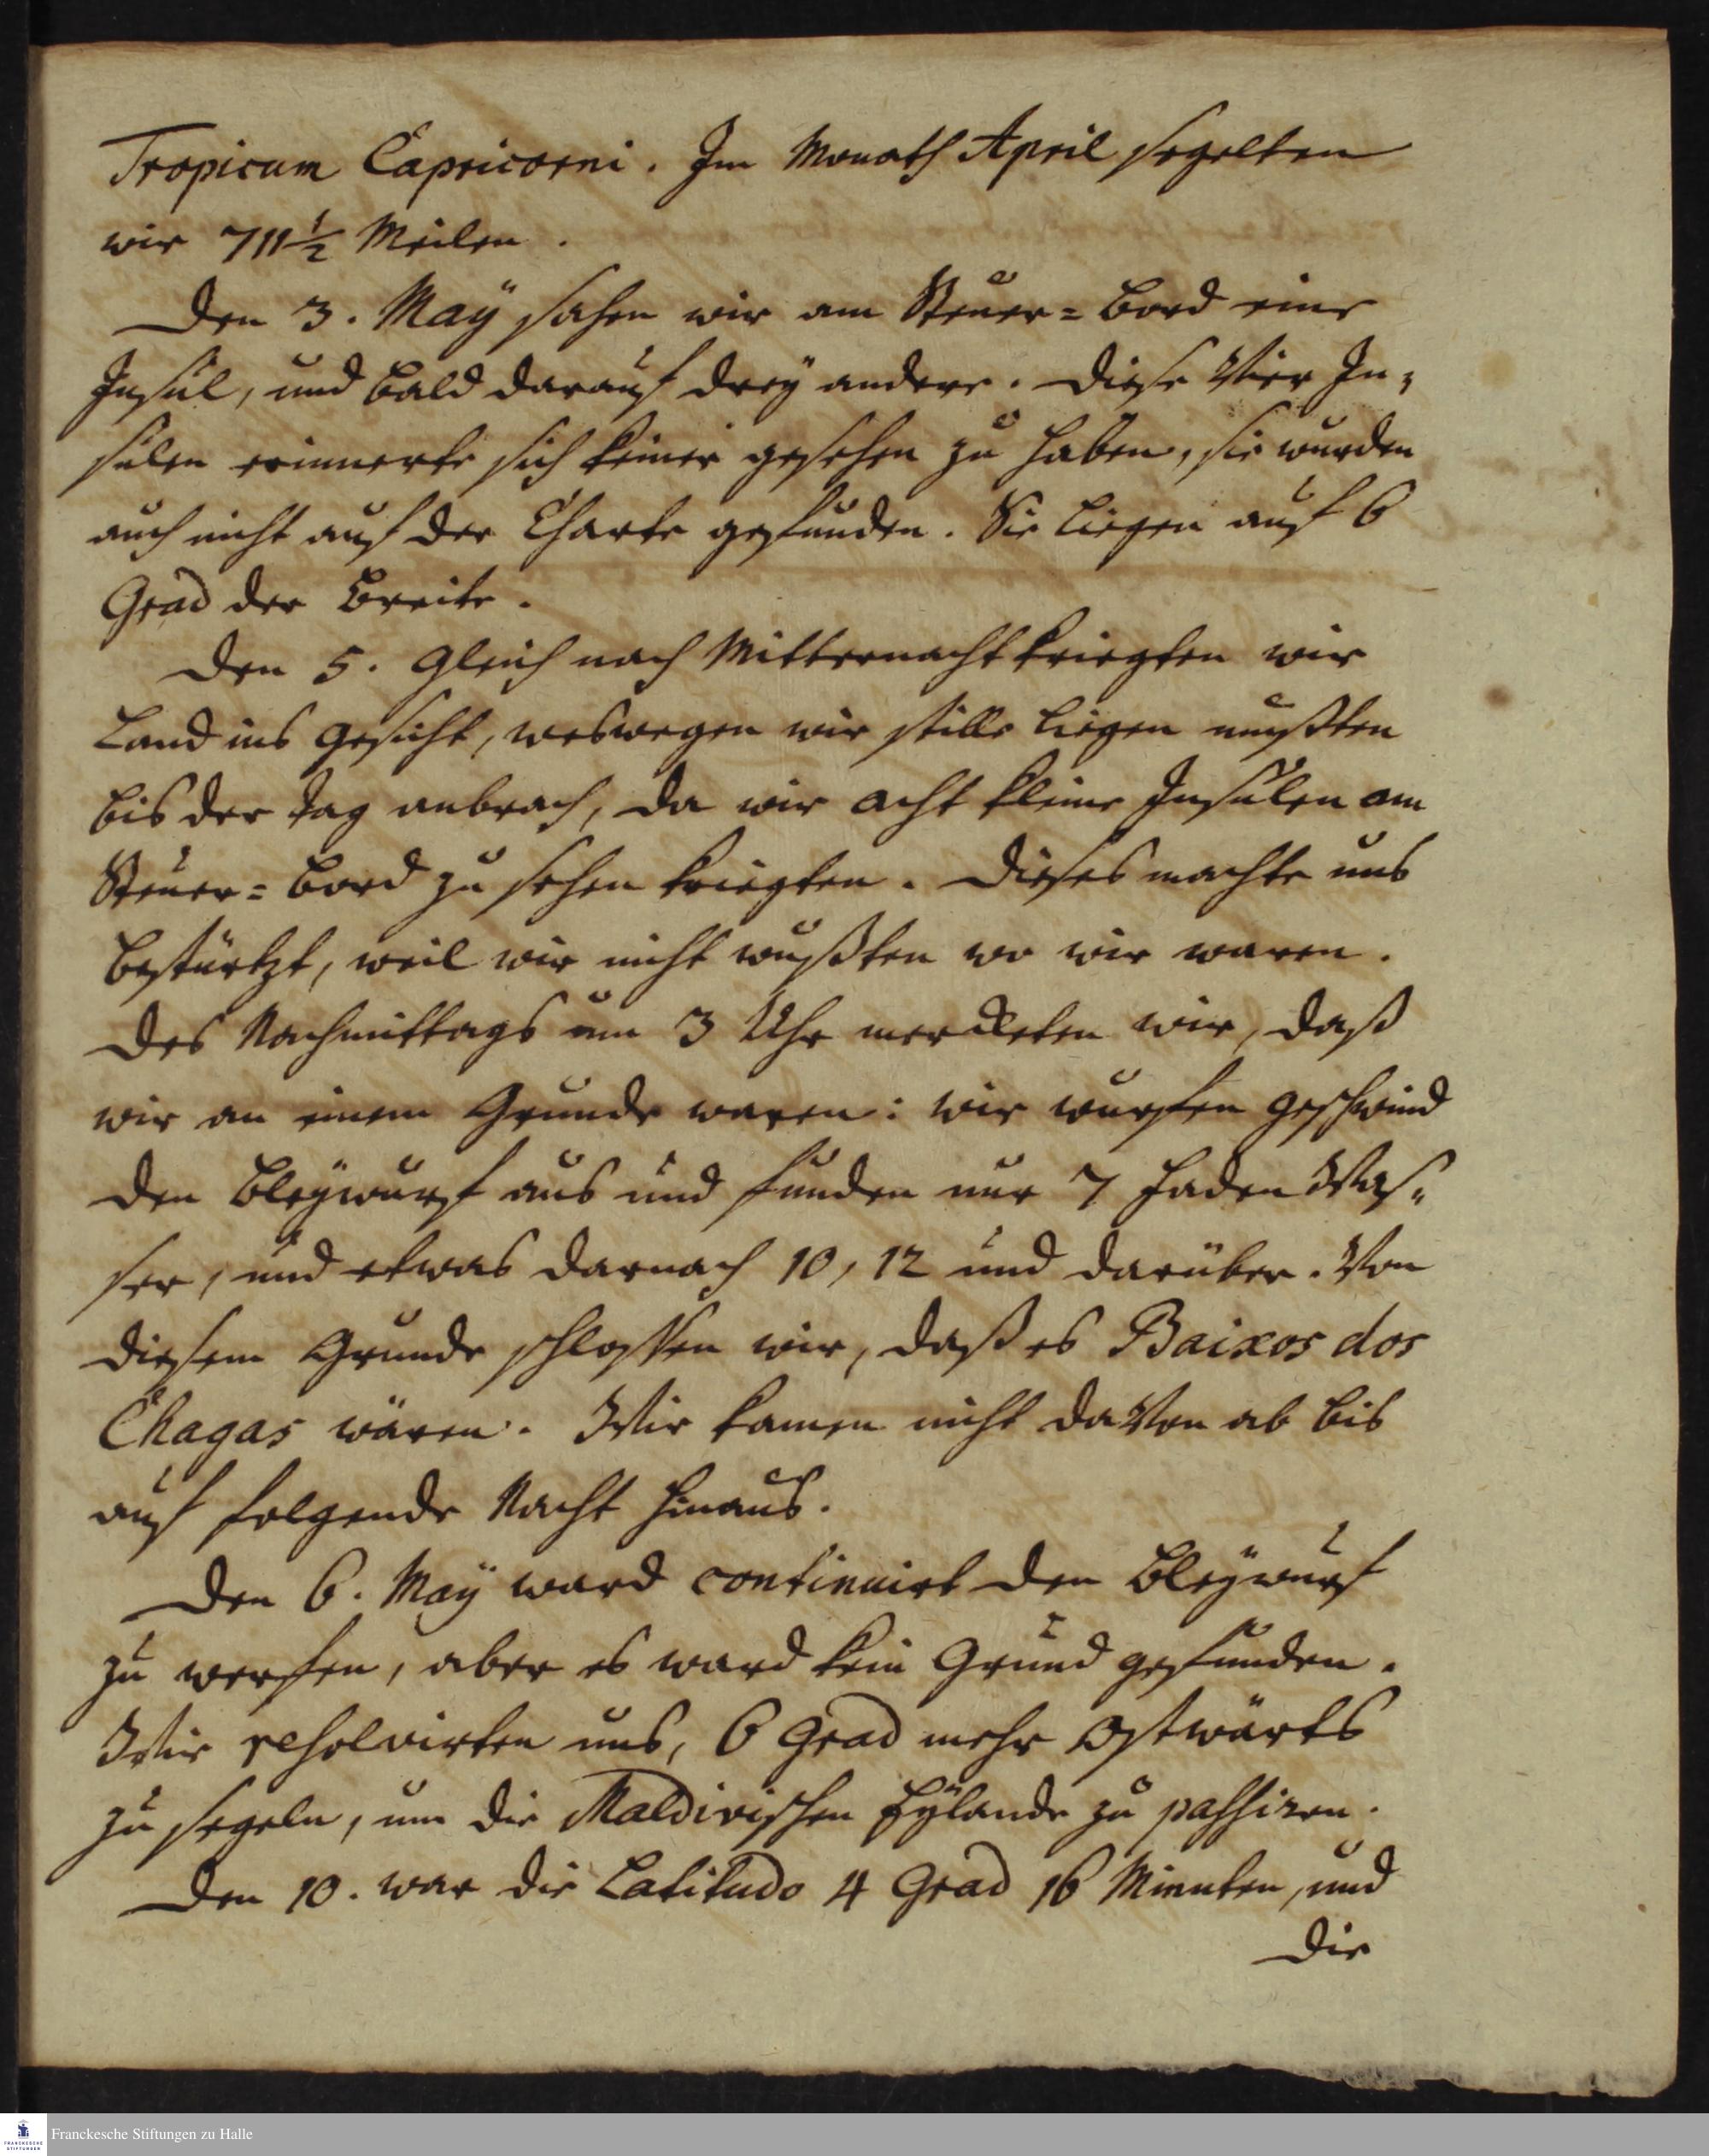 Tropicum Capricorni. Im Monath April segelten
wir 711 1/2 Meilen.
Den 3. Maÿ sahen wir am Steuer=Bord eine
Insul, und bald darauf dreÿ andere. Diese vier In=
sulen erinnerte sich keiner gesehen zu haben, sie wurden
auch nicht auf der Charte gefunden. Sie liegen auf 6
Grad der Breite.
Den 5. gleich nach Mitternacht kriegten wir
Land ins Gesicht, weswegen wir stille liegen mußten
bis der Tag anbrach, da wir acht kleine Insulen am
Steuer=Bord zu sehen kriegten. Dieses machte uns
bestürtzt, weil wir nicht wußten wo wir waren.
Des Nachmittags um 3 Uhr merckten wir, daß
wir an einem Grunde waren: wir wurfen geschwind
den Bleÿwurf aus und funden nur 7 Faden Was=
ser, und etwas darnach 10, 12 und darüber. Von
diesem Grunde schlossen wir, daß es Baixos dos
Chagas wären. Wir kamen nicht davon ab bis
auf folgende Nacht hinaus.
Den 6. Maÿ ward continuirt den Bleÿwurf
zu werfen, aber es ward kein Grund gefunden.
Wir resolvirten uns, 6 Grad mehr Ostwärts
zu segeln, um die Maldivischen Eÿlande zu passiren.
Den 10. war die Latitudo 4 Grad 16 Minuten, und
die
Franckesche Stiftungen zu Halle
FRANCKESCHE
STIFTUNGEN